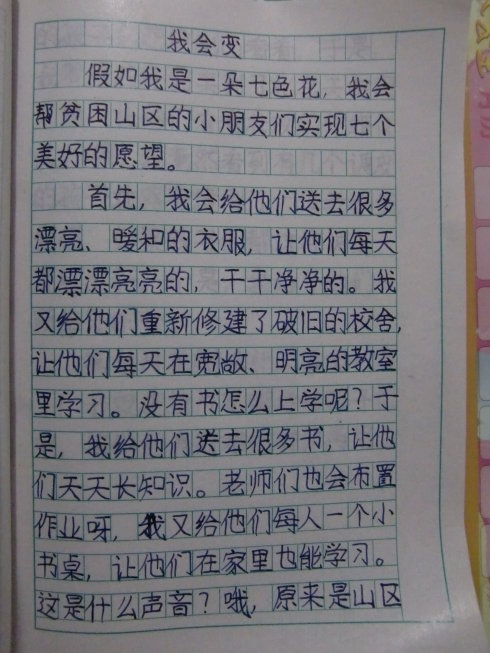 我会变
假如我是一朵七色花，我会
帮贫困山区的小朋友们实现七个
美好的愿望。
首先，我会给他们送去很多
漂亮、暖和的衣服，让他们每天
都漂漂亮亮的，干干净净的。我
又给他们重新修建了破旧的校舍，
让他们每天在宽敞、明亮的教室
里学习。没有书怎么上学呢？于
是，我给他们送去很多书，让他
们天天长知识。老师们也会布置
作业呀，我又给他们每人一个小
书桌，让他们在家里也能学习。
这是什么声音？哦，原来是山区